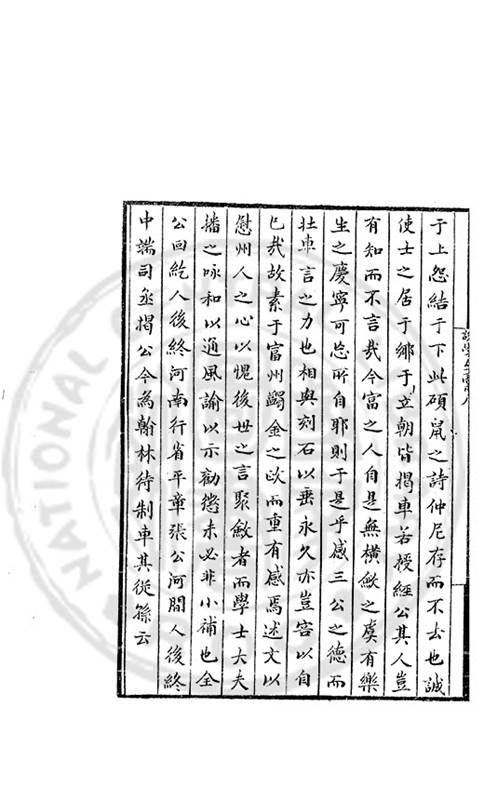 于上怨結于下此碩鼠之詩仲尼存而不去也誠
使士之居于鄉于立朝皆揭車若授經公其人豈
有知而不言哉今富之人自是無橫斂之虞有樂
生之慶寧可忘所自耶則于是乎感三公之德而
壯車言之力也相與刻石以垂永久亦豈容以自
已哉故素于富州蠲金之政而重有感焉述文以
慰州人之心以愧後世之言聚斂者而學士大夫
播之咏和以通風諭以示勸懲未必非小補也全
公回紇人後終河南行省平章張公河間人後終
中端司丞揭公今為翰林待制車其從孫云
NATIONAL